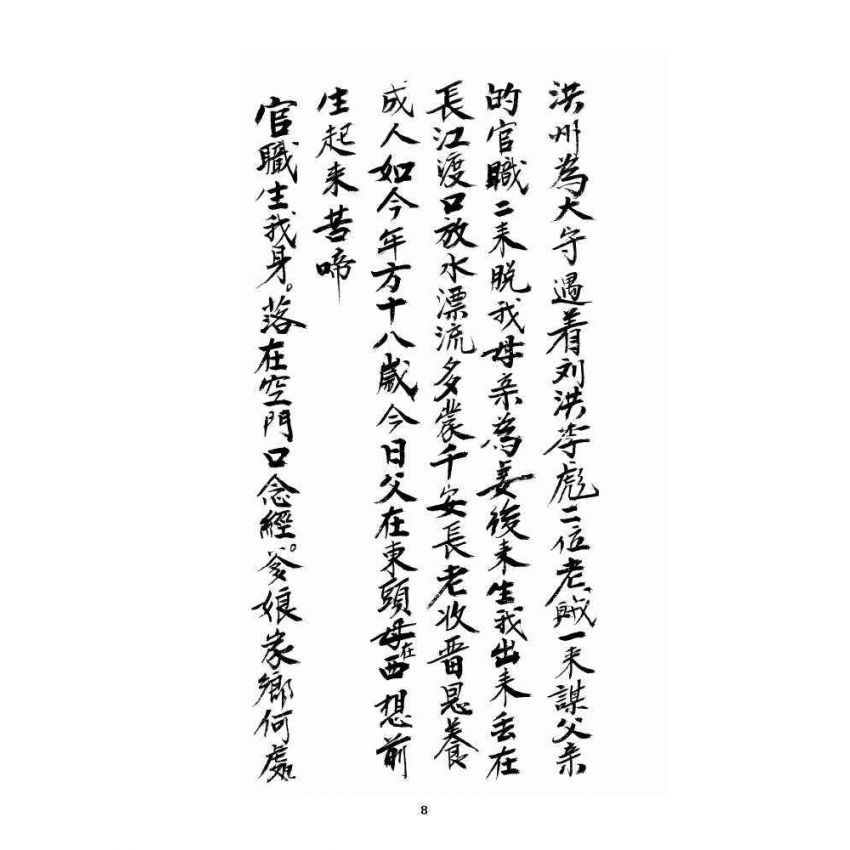 洪州為大守遇着刘洪李彪二位老贼一来謀父亲
的官職二来脱我母亲為妾後来生我出来丢在
長江渡口放水漂流多蒙千安長老收晋恩養
成人如今年方十八歲今日父在東頭母在西想前
生起来苦啼
官職生我身。落在空門口念經。爹娘家鄉何處
8